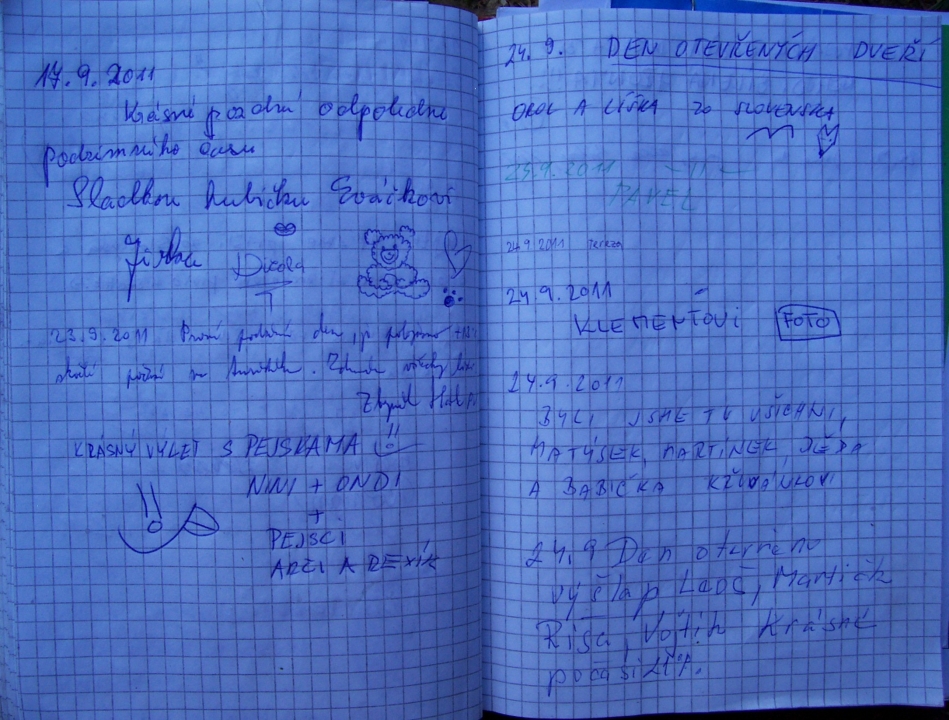 17.9.2011
Krásné pozdní odpoledne
podzimního času
Sladkou hubičku Eváčkovi
Jirka
23.9.2011 První podzimní den, je polojasno
Zdravím všechny
Zbyněk
KRÁSNÝ VÝLET S PEJSKAMA
NINI + ONDI
+
PEJSCI
ARČI A REXÍK
24.9. DEN OTEVŘENÝCH DVEŘÍ
OROL A LÍŠKA ZO SLOVENSKA
25.9.2011 -11-
PAVEL
24.9.2011 Tereza
24.9.2011
KLEMENTOVI FOTO
24.9.2011
BYLI JSME TU VŠICHNI,
MATÝSEK, MARTÍNEK, DĚDA
A BABIČKA KŘIVÁNKOVI
24.9 Den otevřeno
výšlap Ladč, Martičk
Ríša, Vojtíh Krásné
počasíčko.